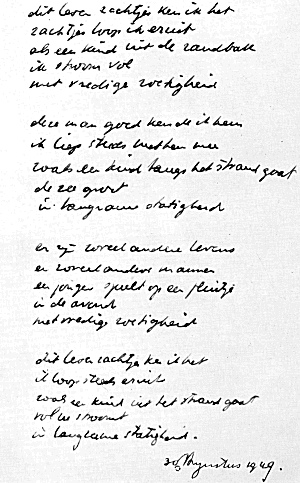 dit leven zachtjes ken ik het
zachtjes loop ik eruit
als een kind uit de zandbak
ik stroom vol
met vredige zoetigheid
deze man goed kende ik hem
ik liep steeds met hem mee
zoals een kind langs het strand gaat
de zee groet
in langzame statigheid
er zijn zoveel andere levens
er zoveel andere mannen
een jongen speelt op een fluitje
in de avond
met vredige zoetigheid
dit leven zachtjes ken ik het
ik loop steeds eruit
zoals een kind uit het strand gaat
vol in stroomt
in langzame statigheid.
Augustus 1949.